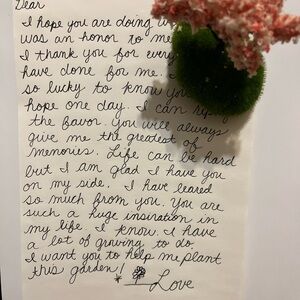 Dear
I hope you are doing w
was an honor to me
I thank you for every
have done for me.
so lucky to know you
hope one day. I can
the favor. You will always
give me the greatest of
memories. Life can be hard
but I am glad I have you
on my side. I have leared
so much from you. You are
such a huge insiration in
my life. I know. I have
a lot of growing to do.
I want you to help me plant
this garden!
Love